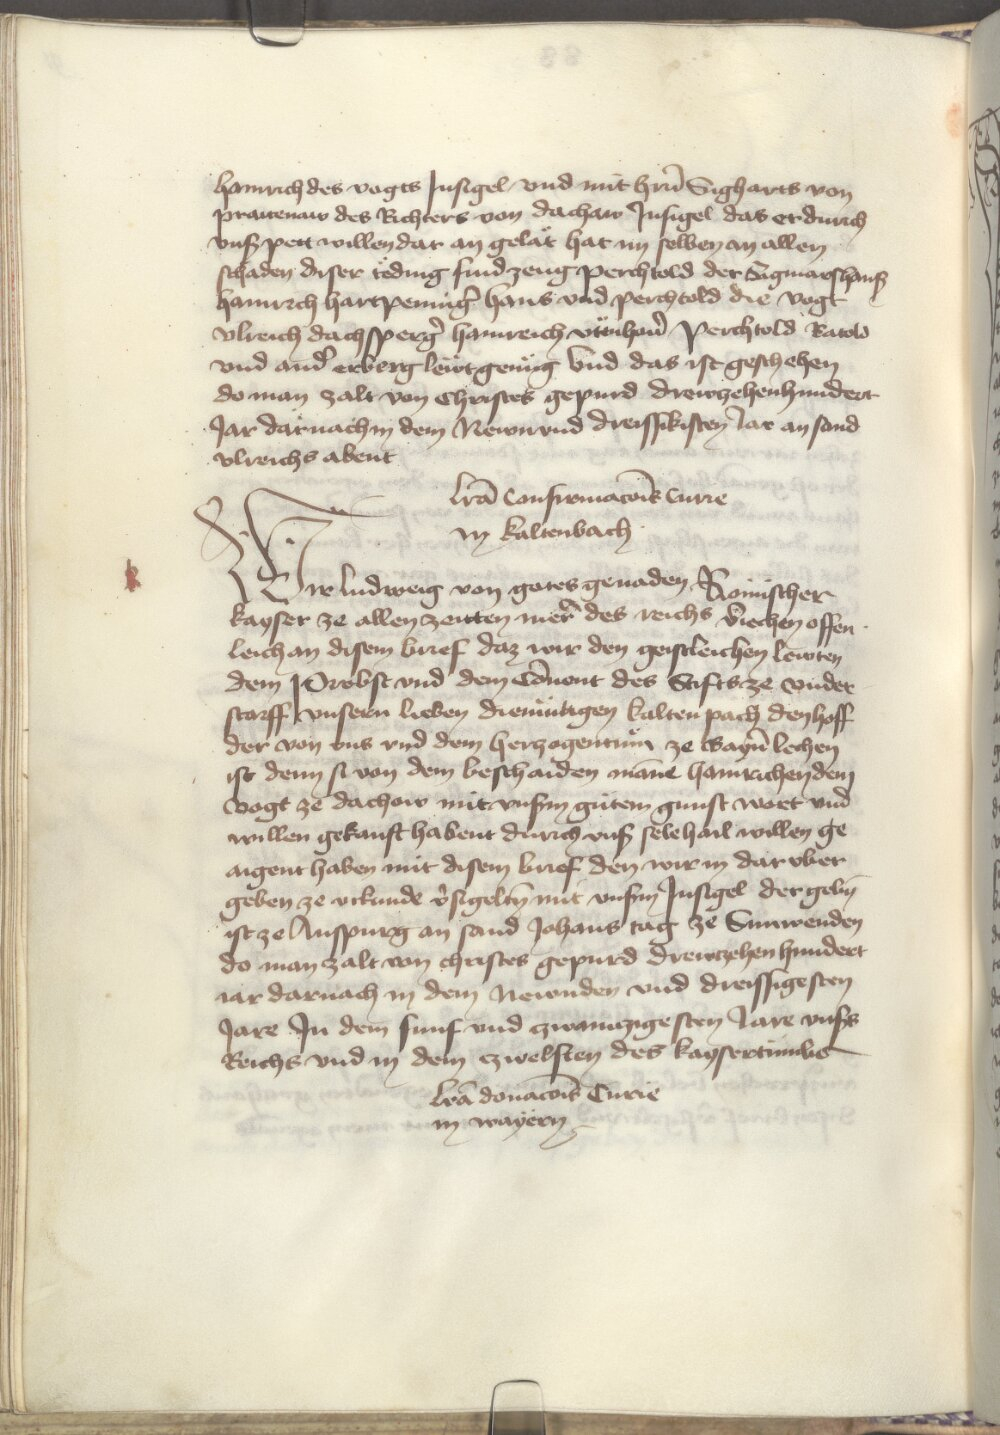 hainrich des vogts Jnsigel vnd mit hrñ Sigharts von
praitenaw des Richters von dachaw Jnsigel das er durch
vnß pett willen dar an gelät hat im selben an allen
schaden diser täding sind zeug perchtold der Sigmarshauß
hainrich hartpening̃ hans vnd perchtold die vogt
vlreich dachssperg̃ hainreich vttnhouer̃ Perchtold Ratold
vnd and̃ erberg lewt genüg Vnd das ist geschehen
do man zalt von Christes gepurd drewzehenhundert
Jar darnach in dem Newn vnd dreissikisten Jar an sand
vlreichs abent
lrã Confirmacõis Curie
in kaltenbach
Wir ludweig von gotes genaden Römischer
kayser ze allen zeitten merẽ des reichs v̄iechen offen
leich an disem brief daz wir den geistleichen lewten
dem Probst vnd dem Cõuent des Stifts ze vnder
storff vnsern lieben diemütigen kalten pach den hoff
der von vns vnd dem herzogentum ze Bayrñ lechen
ist denn si von dem beschaiden manne hainrichen dem
vogt ze dachaw mit vnserm gütem gunst wort vnd
willen gekauft habent durch vnß selehail willen ge
aigent haben mit disem brief den wir in dar vber
geben ze vrkunde v̄sigelten mit vnserm Jnsigel der geben
ist ze Auspurg an sand Johans tag ze Sunwenden
do man zalt von christes gepurd drewzehen hundert
iar darnach in dem Newnden vnd dreissigesten
Jare Jn dem funf vnd zwainzigesten Jare vnsers
Reichs vnd in dem zwelften des kaysertumbs
lrã donacõis Curie
in wayern